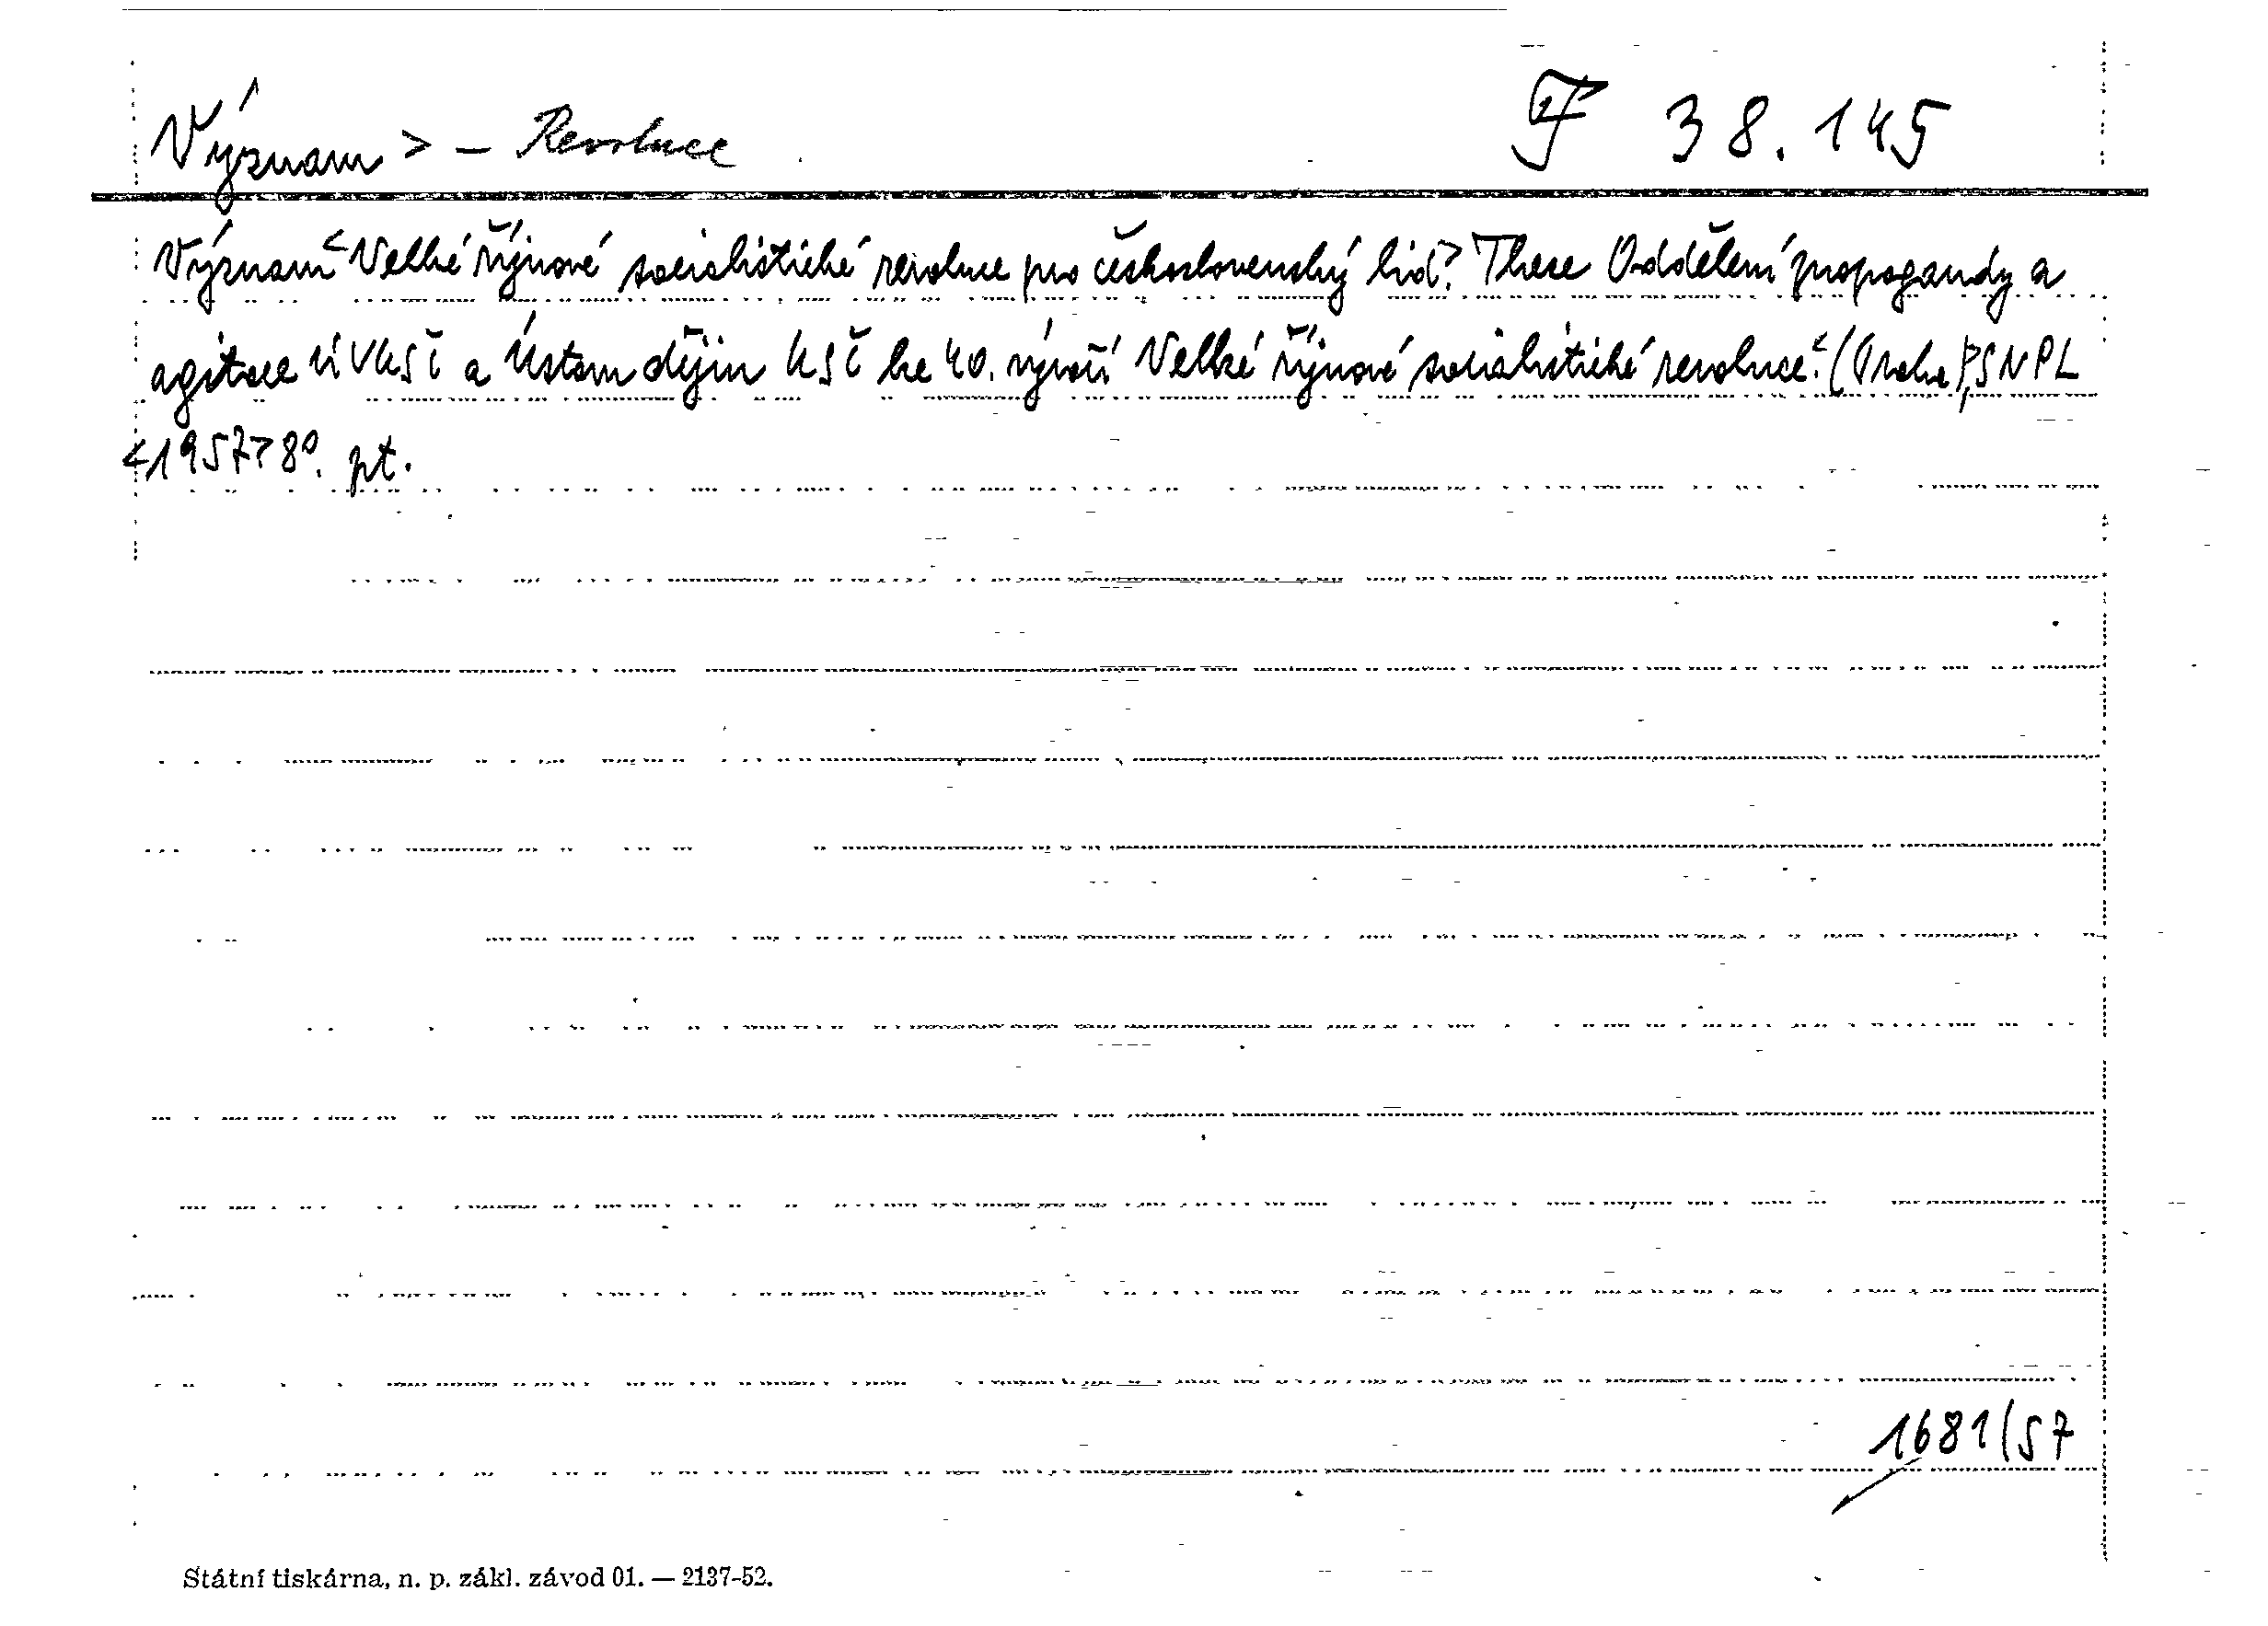 Význam > - Revoluce F 38.145
Význam < Velké říjnové socialistické revoluce pro československý lid.> These Oddělení propagandy a
agitace ÚV KSČ a Ústavu dějin KSČ ke 40. výročí Velké říjnové socialistické revoluce.< (Praha), SNPL
<1957> 8°. pt.
1681/57
Státní tiskárna, n. p. zákl. závod 01. — 2137-52.